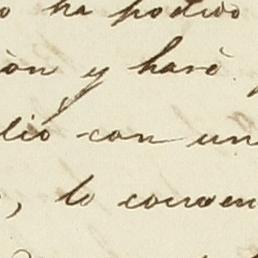 o ha podido
ión y hará
lió con un
, lo conven